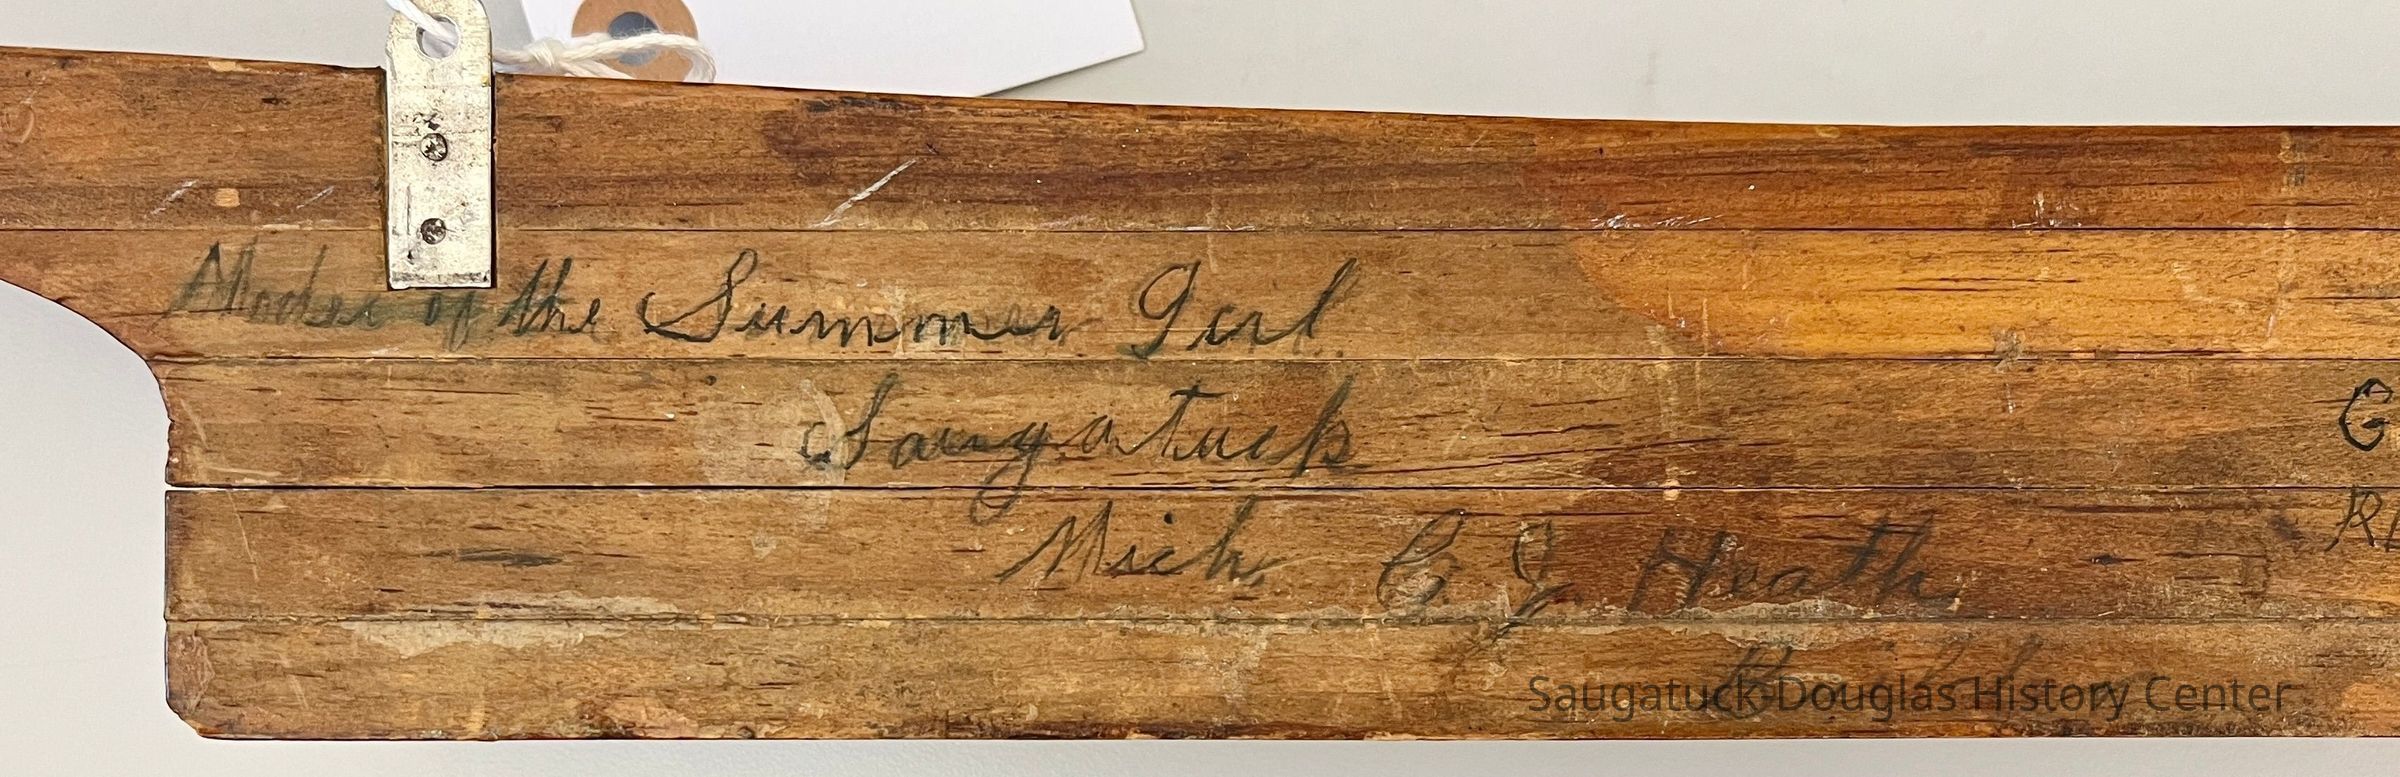 Model of the Summer Girl
Saugatuck
Mich. C. J. Heath
Builder
G
R
Saugatuck-Douglas History Center